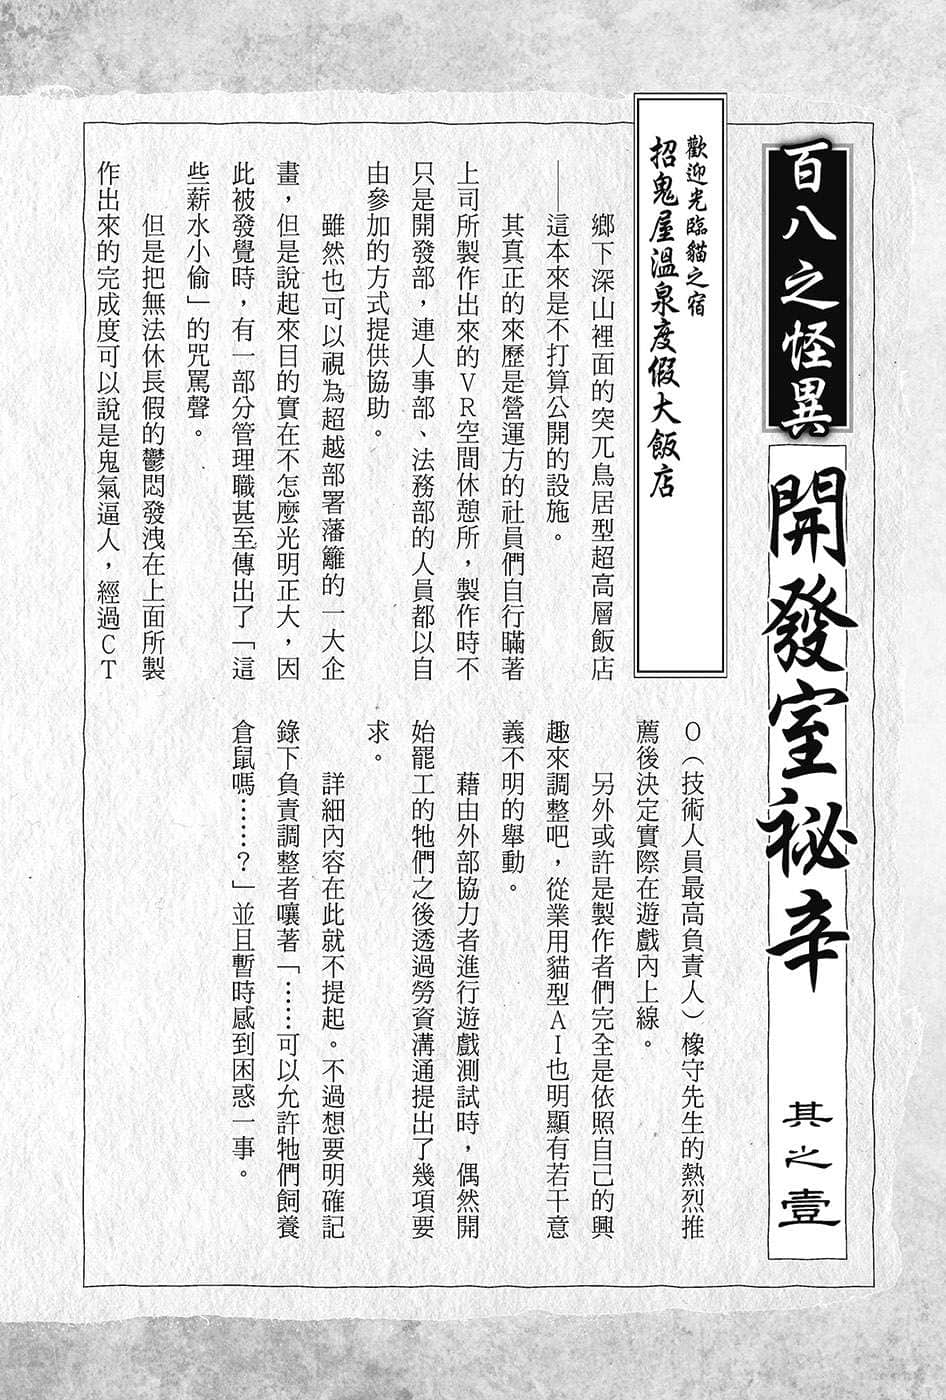 百八之怪異
開發室秘辛
其之壹
歡迎光臨貓之宿
招鬼屋溫泉度假大飯店
鄉下深山裡面的突兀鳥居型超高層飯店
——這本來是不打算公開的設施。
其真正的來歷是營運方的社員們自行瞞著
上司所製作出來的VR空間休憩所，製作時不
只是開發部，連人事部、法務部的人員都以自
由參加的方式提供協助。
雖然也可以視為超越部署藩籬的一大企
畫，但是說起來目的實在不怎麼光明正大，因
此被發覺時，有一部分管理職甚至傳出了「這
些薪水小偷」的咒罵聲。
但是把無法休長假的鬱悶發洩在上面所製
作出來的完成度可以說是鬼氣逼人，經過CT
O（技術人員最高負責人）橡守先生的熱烈推
薦後決定實際在遊戲內上線。
另外或許是製作者們完全是依照自己的興
趣來調整吧，從業用貓型AI也明顯有若干意
義不明的舉動。
藉由外部協力者進行遊戲測試時，偶然開
始罷工的牠們之後透過勞資溝通提出了幾項要
求。
詳細內容在此就不提起。不過想要明確記
錄下負責調整者嚷著「……可以允許牠們飼養
倉鼠嗎……？」並且暫時感到困惑一事。